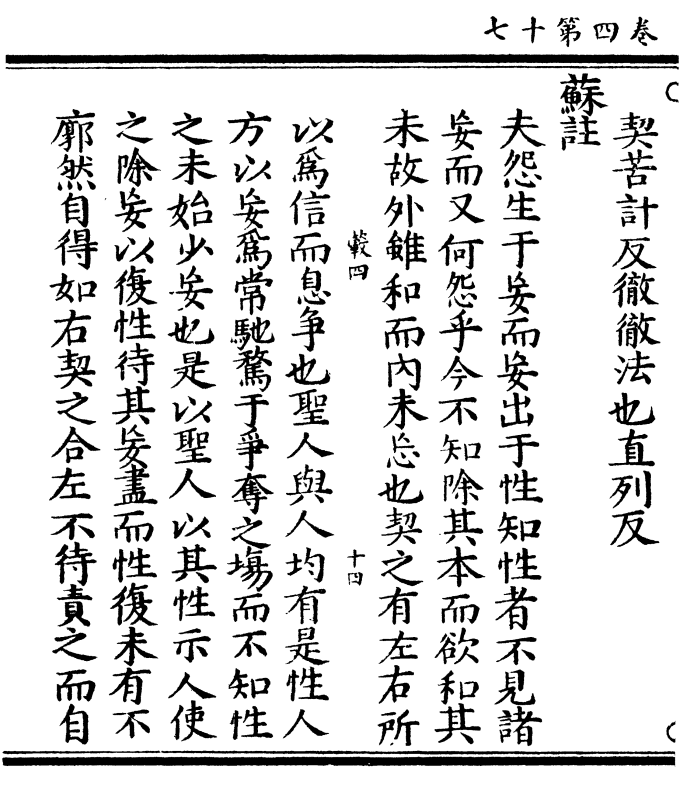 卷四第十七
契苦計反徹徹法也直列反
蘇註
夫怨生于妄而妄出于性知性者不見諸
妄而又何怨乎今不知除其本而欲和其
未故外雖和而內未忘也契之有左右所
籔四
十四
以爲信而息爭也聖人與人均有是性人
方以妄爲常馳騖于爭奪之塲而不知性
之未始少妄也是以聖人以其性示人使
之除妄以復性待其妄盡而性復未有不
廓然自得如右契之合左不待責之而自